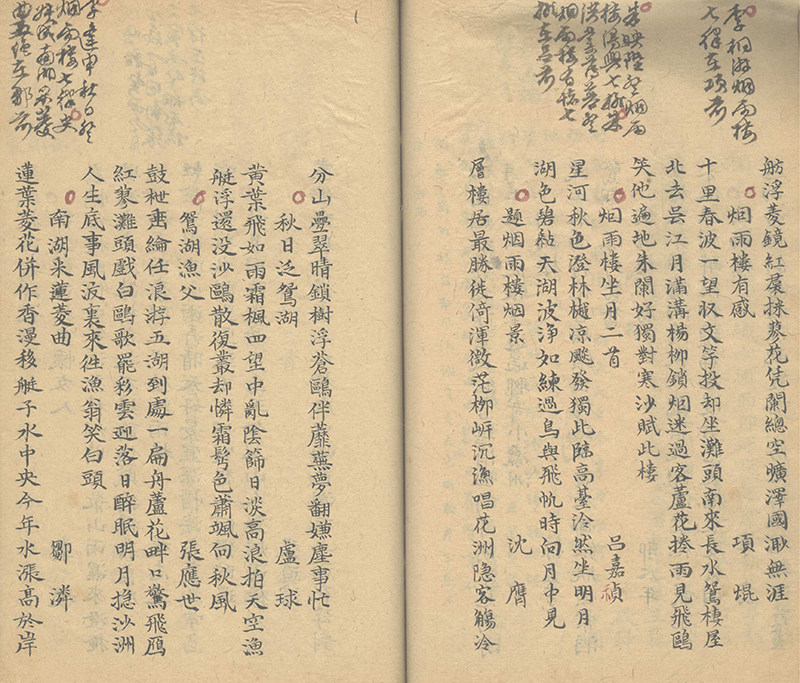 李桐游烟雨樓
七律在項前
舫浮菱鏡紅裙採蓼花凭闌總空曠澤國渺無涯
烟雨樓有感 項焜
十里春波一望収文竿投却坐灘頭南來長水鴛棲屋
北去吳江月滿溝楊柳鎖烟迷過客蘆花捲雨見飛鷗
朱映陞登烟雨
樓漫興七排朱
洪登
烟雨樓有懷七
排在呂前
笑他遍地朱闌好獨對寒沙賦此樓
烟雨樓坐月二首 呂嘉禎
星河秋色澄林樾凉飈發獨此陟高臺泠然坐明月
湖色碧黏天湖波淨如練過鳥與飛帆時向月中見
題烟雨樓烟景 沈膺
層樓居最勝徙倚渾微茫柳岍沉漁唱花洲隐客觴泠
分山疊翠晴鎖樹浮蒼鷗伴蘼蕪夢翻嫌塵事忙
秋日泛鴛湖 盧球
黃葉飛如雨霜楓四望中亂陰篩日淡高浪拍天空漁
艇浮還没沙鷗散復叢却憐霜鬢色蕭颯向秋風
鴛湖漁父 張應世
鼓枻垂綸任浪游五湖到處一扁舟蘆花畔口驚飛鴈
紅蓼灘頭戲白鷗歌罷彩雲迎落日醉眠明月搃沙洲
李達申秋日登
烟雨樓七律史
成南湖采菱
曲五絕在鄒前
人生底事風波裏來徃漁翁笑白頭
南湖采蓮菱曲 鄒潾
蓮葉菱花併作香漫移艇子水中央今年水漲高於岸